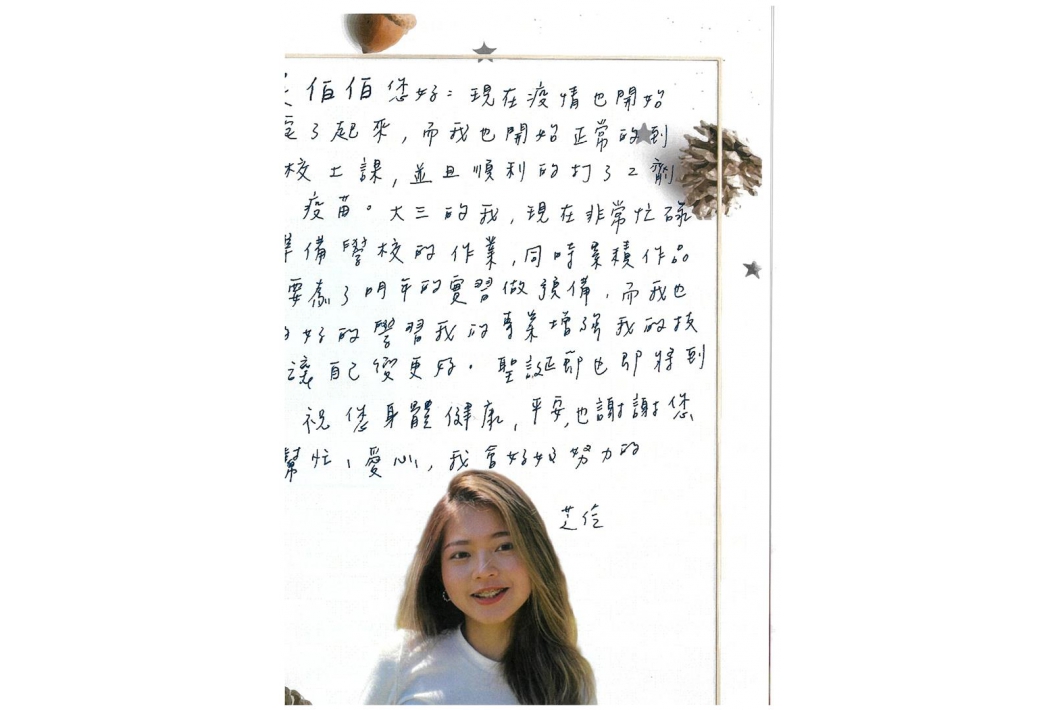 佰佰您好：現在疫情也開始
定了起來，而我也開始正常的到
校上課，並且順利的打了2劑
疫苗。大三的我，現在非常忙碌
準備學校的作業，同時累積作品
要為了明年的實習做預備，而我也
好的學習我的專業增強我的技
讓自己變更好。聖誕節也即將到
祝您身體健康，平安，也謝謝您
幫忙、愛心，我會好好努力的